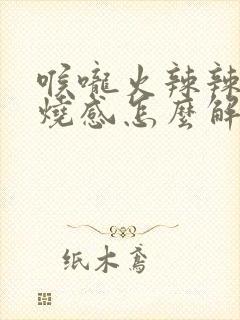 喉嚨火辣辣
燒感怎麼解
纸木鸢